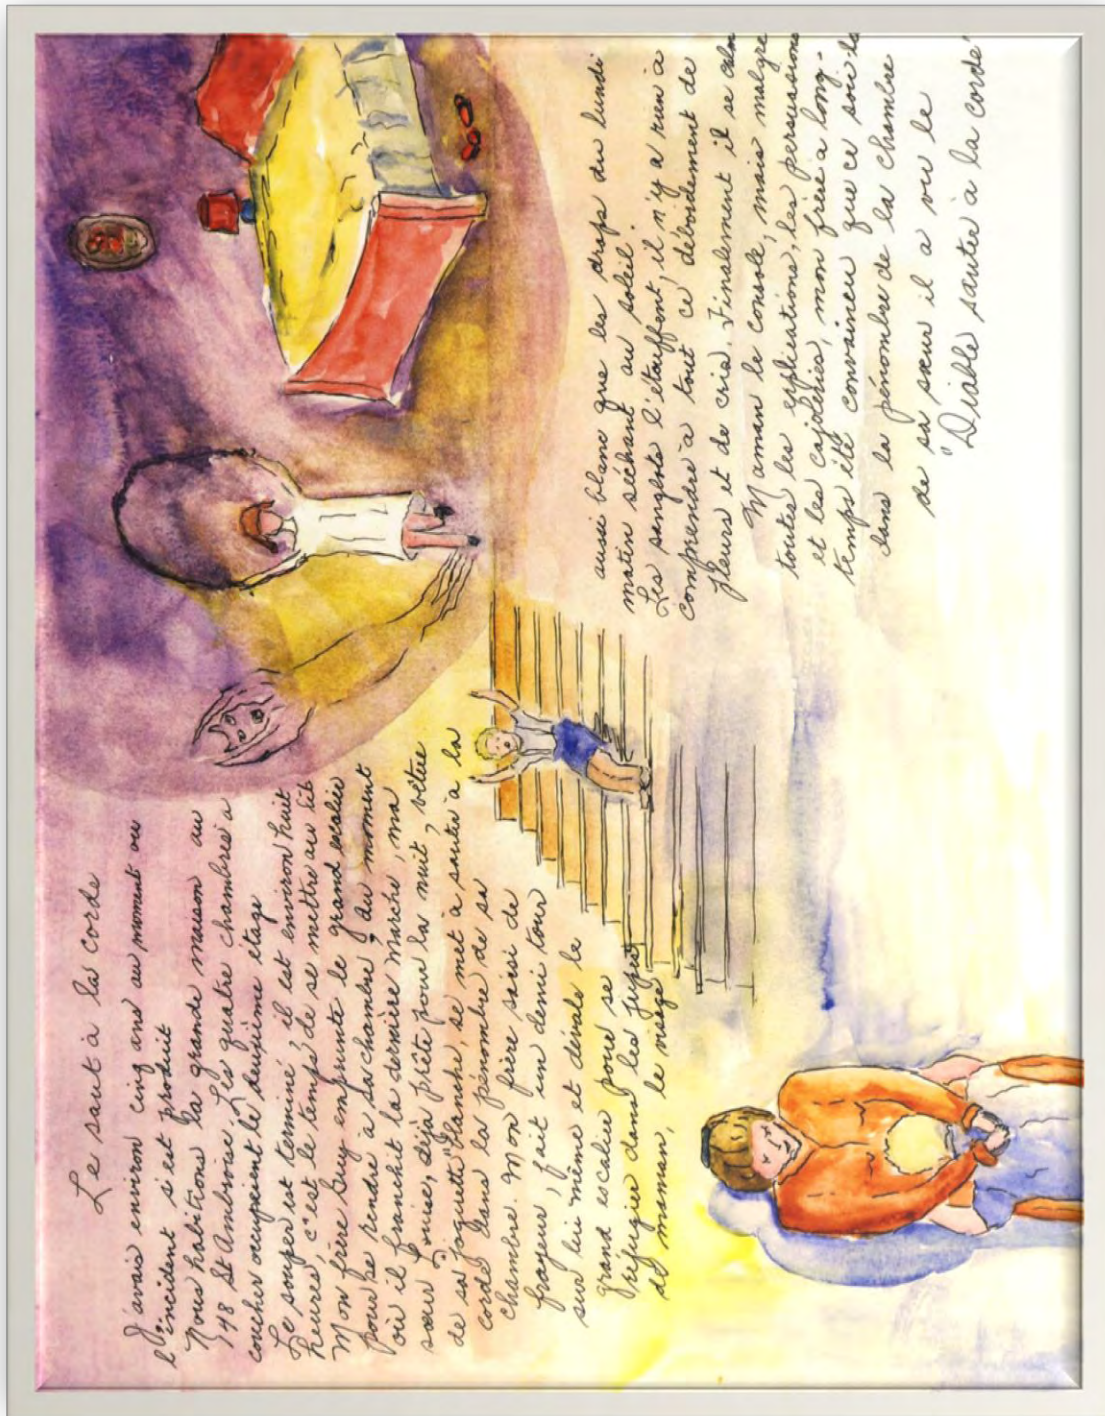 Le saut à la corde
J'avais environ cinq ans au moment ou
l'incident s'est produit
Nous habitions la grande maison au
148 St Ambroise. Les quatre chambres à
coucher occupaient le deuxième étage
Le souper est terminé, il est environ huit
heures, c'est le temps de se mettre au lit
Mon frère Guy emprunte le grand escalier
pour se rendre à sa chambre, au moment
où il franchit la dernière marche, ma
sœur Louise, déjà prête pour la nuit, vêtue
de sa "jaquette" blanche, se met à sauter à la
corde dans la pénombre de sa
chambre. Mon frère saisi de
frayeur, fait un demi tour
sur lui même et dévale le
grand escalier pour se
réfugier dans les jupes
de maman, le visage
aussi blanc que les draps du lundi
matin séchant au soleil.
Les sanglots l'étouffent, il n'y a rien à
comprendre à tout ce débordement de
pleurs et de cris. Finalement il se calm
Maman le console, mais malgré
toutes les explications, les persuasions
et les cajoleries, mon frère a long-
temps été convaincu que ce soir là
dans la pénombre de la chambre
de sa sœur il a vu le
"Diable sauter à la corde"